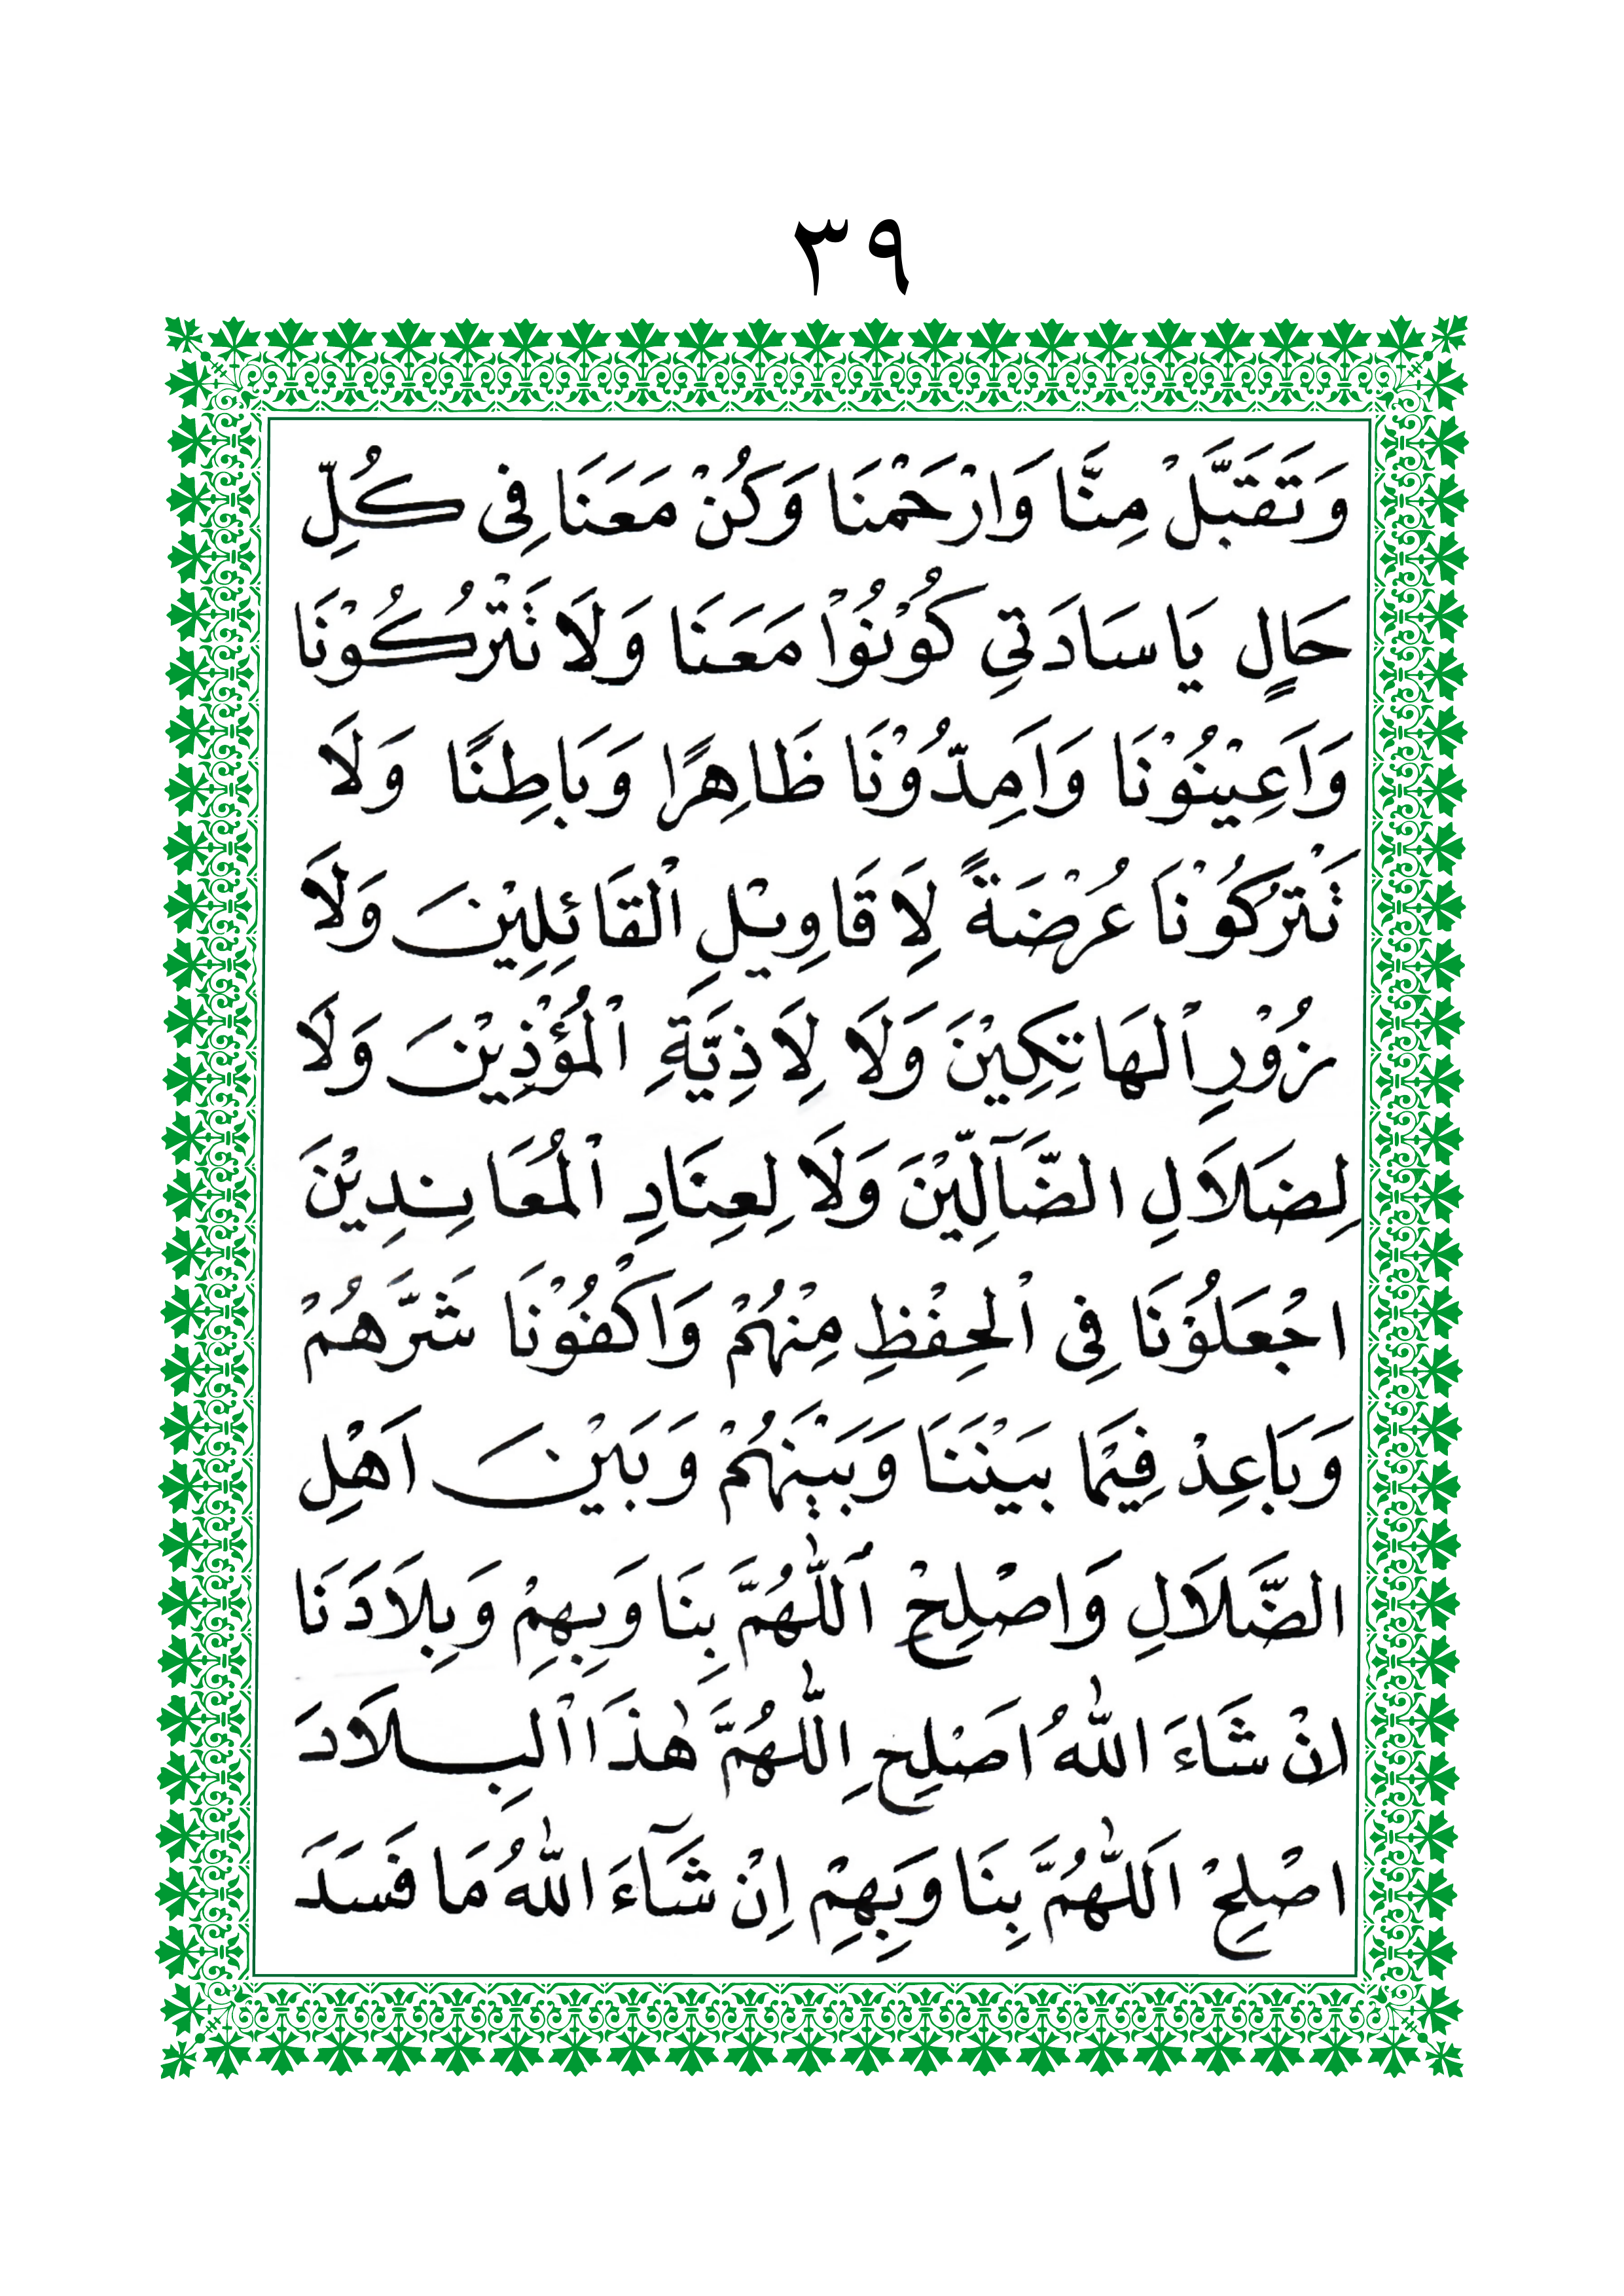 ٣٩
وَتَقَبَّلْ مِنَّا وَارْحَمْنَا وَكُنْ مَعَنَا فِى كُلِّ
حَالٍ يَا سَادَتِي كُوْنُوْا مَعَنَا وَلَا تَتْرُكُوْنَا
وَاَعِيْنُوْنَا وَاَمِدُّوْنَا ظَاهِرًا وَبَاطِنًا وَلَا
تَتْرُكُوْنَا عُرْضَةً لِاَقَاوِيْلِ الْقَائِلِيْنَ وَلَا
زُوْرِ الْهَاتِكِيْنَ وَلَا لِاَذِيَّةِ الْمُؤْذِيْنَ وَلَا
لِضَلَالِ الضَّآلِّيْنَ وَلَا لِعِنَادِ الْمُعَانِدِيْنَ
اجْعَلُوْنَا فِى الْحِفْظِ مِنْهُمْ وَاكْفُوْنَا شَرَّهُمْ
وَبَاعِدْ فِيْمَا بَيْنَنَا وَبَيْنَهُمْ وَبَيْنَ اَهْلِ
الضَّلَالِ وَاصْلِحْ اَللّٰهُمَّ بِنَا وَبِهِمْ وَبِلَادَنَا
اِنْ شَاءَ اللّٰهُ اصْلِحِ اللّٰهُمَّ هٰذَا الْبِلَادَ
اصْلِحْ اَللّٰهُمَّ بِنَا وَبِهِمْ اِنْ شَآءَ اللّٰهُ مَا فَسَدَ